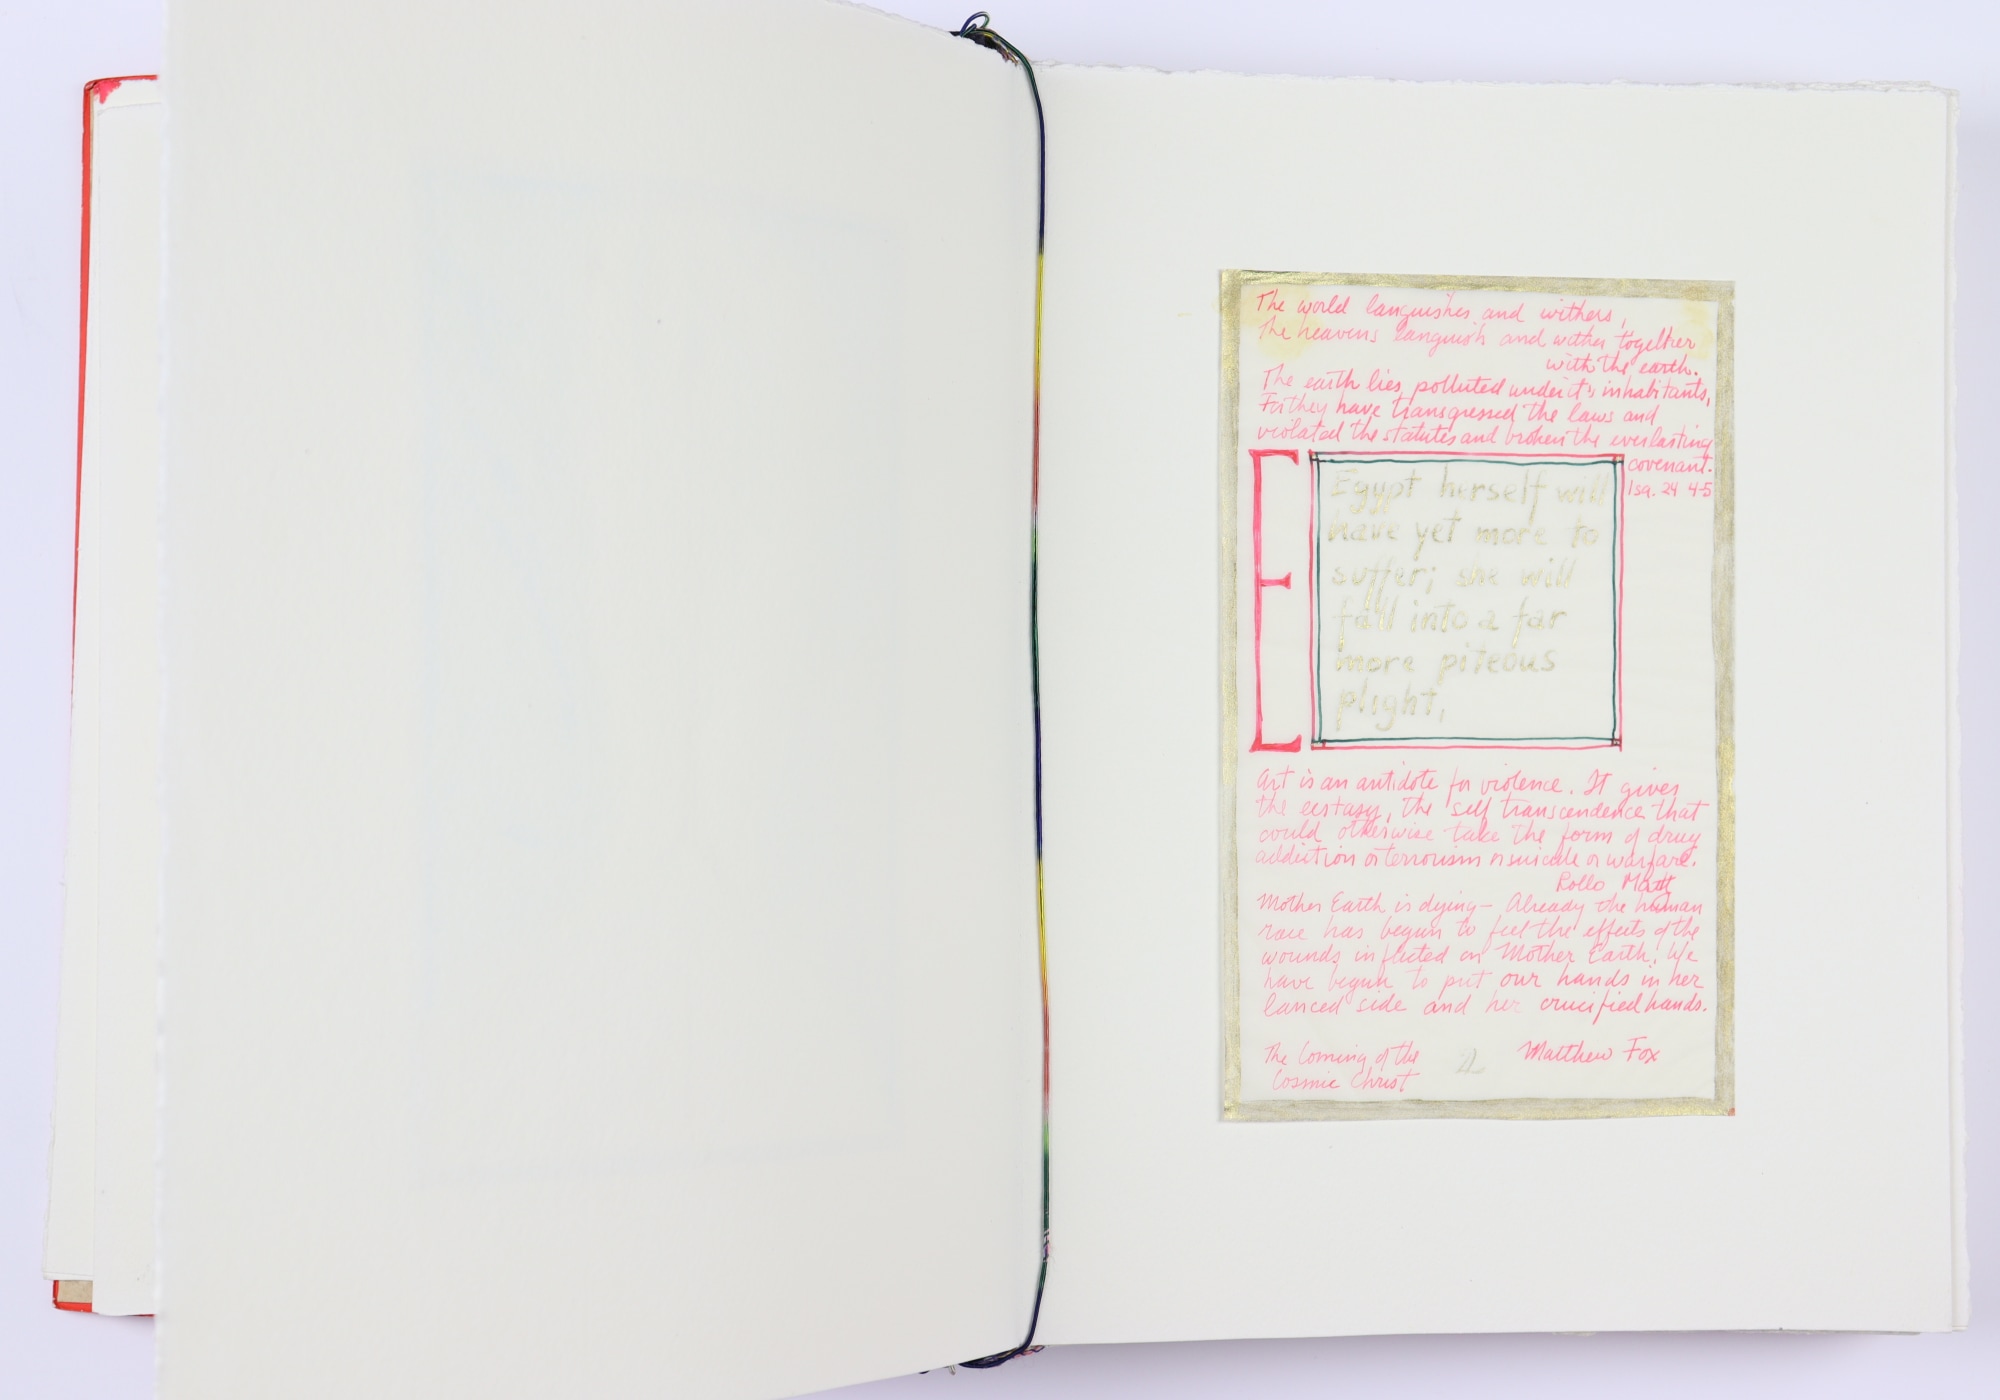 The world languishes and withers,
The heavens languish and wither together
with the earth.
The earth lies polluted under it's inhabitants,
For they have transgressed the laws and
violated the statutes and broken the everlasting
covenant.
Isa. 24 4-5
E
Egypt herself will
have yet more to
suffer; she will
fall into a far
more piteous
plight,
Art is an antidote for violence. It gives
the ecstasy, the self transcendence that
could otherwise take the form of drug
addiction or terrorism or suicide or warfare.
Rollo
Mother Earth is dying — Already the human
race has begun to feel the effects of the
wounds inflicted on Mother Earth. We
have begun to put our hands in her
lanced side and her crucified hands.
The Coming of the
Cosmic Christ
Matthew Fox